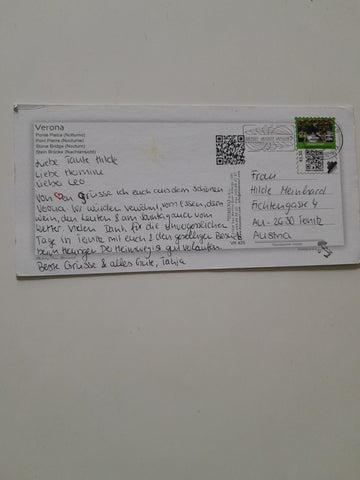 Verona
Ponte Pietra (Notturno)
Pont Pierra (Nocturne)
Stone Bridge (Nocturn)
Stein Brücke (Nachtansicht)
Liebe Tante Hilde
Liebe Hermine
Liebe Leo
Von ♥en Grüsse ich euch aus dem schönen
Verona. Wir wurden verwöhnt, vom Essen, dem
Wein, den Leuten & am dank, auch vom
Wetter. Vielen Dank für die unvergesslichen
Tage in Ternitz mit euch & den geselligen Besuch
beim Heurigen. Die Heimweg ist gut verlaufen.
Beste Grüsse & alles Gute, Tanja
Frau
Hilde Meinhard
Fichtengasse 4
AU-2630 Ternitz
Austria
VR 625